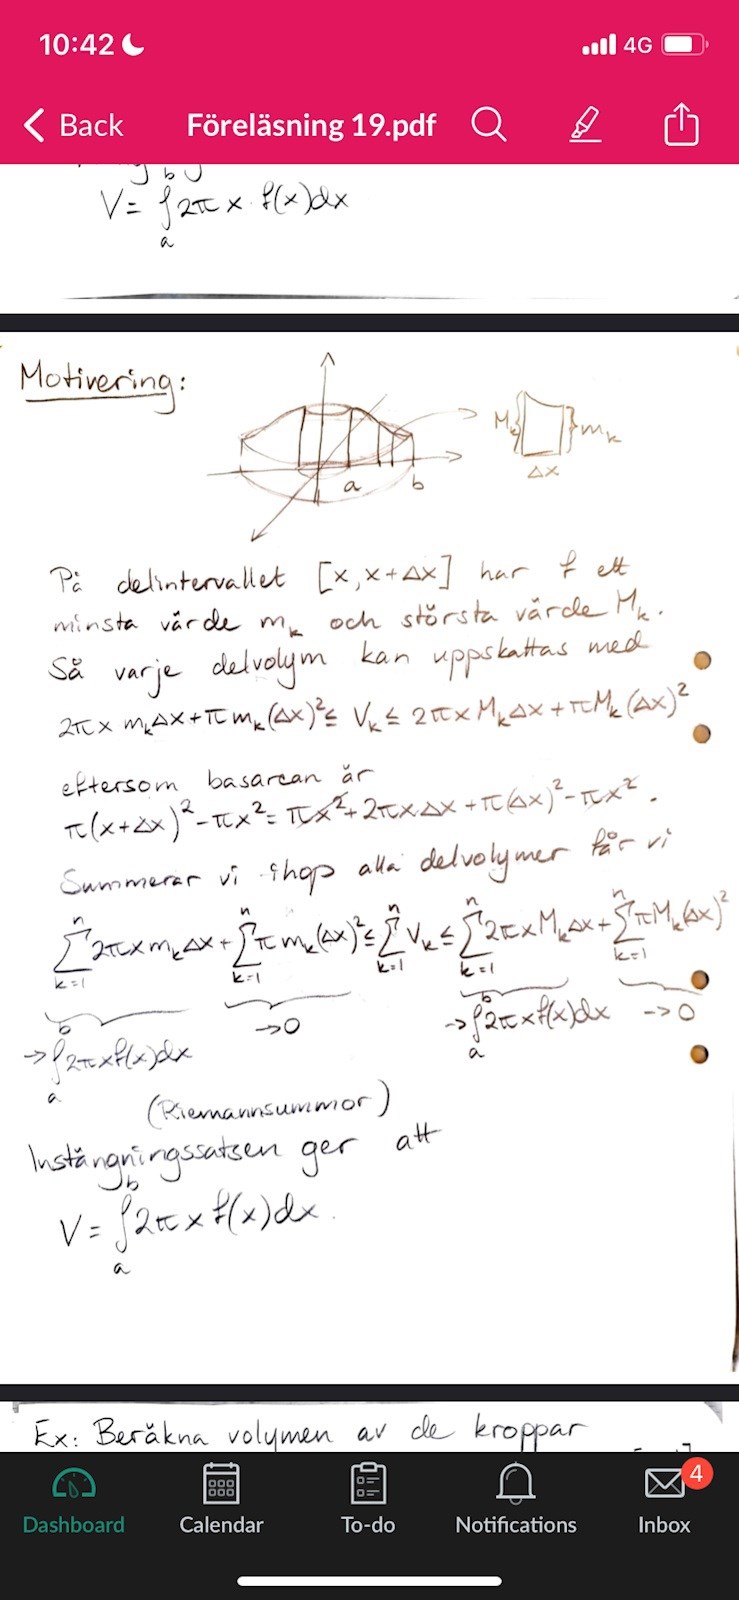 10:42
4G
Back
Föreläsning 19.pdf
V = ∫ₐᵇ 2π x · f(x)dx
Motivering:
M_k
m_k
Δx
a
b
På delintervallet [x, x+Δx] har f ett
minsta värde m_k och största värde M_k.
Så varje delvolym kan uppskattas med
2πx m_kΔx + πm_k(Δx)² ≤ V_k ≤ 2πx M_kΔx + πM_k(Δx)²
eftersom basarean är
π(x+Δx)² - πx² = πx² + 2πxΔx + π(Δx)² - πx².
Summerar vi ihop alla delvolymer får vi
∑ₖ₌₁ⁿ 2πx m_kΔx + ∑ₖ₌₁ⁿ πm_k(Δx)² ≤ ∑ₖ₌₁ⁿ V_k ≤ ∑ₖ₌₁ⁿ 2πx M_kΔx + ∑ₖ₌₁ⁿ πM_k(Δx)²
→ ∫ₐᵇ 2πx f(x)dx →0 → ∫ₐᵇ 2πx f(x)dx →0
(Riemannsummor)
Instängningssatsen ger att
V = ∫ₐᵇ 2πx f(x)dx.
Ex: Beräkna volymen av de kroppar
4
Dashboard
Calendar
To-do
Notifications
Inbox